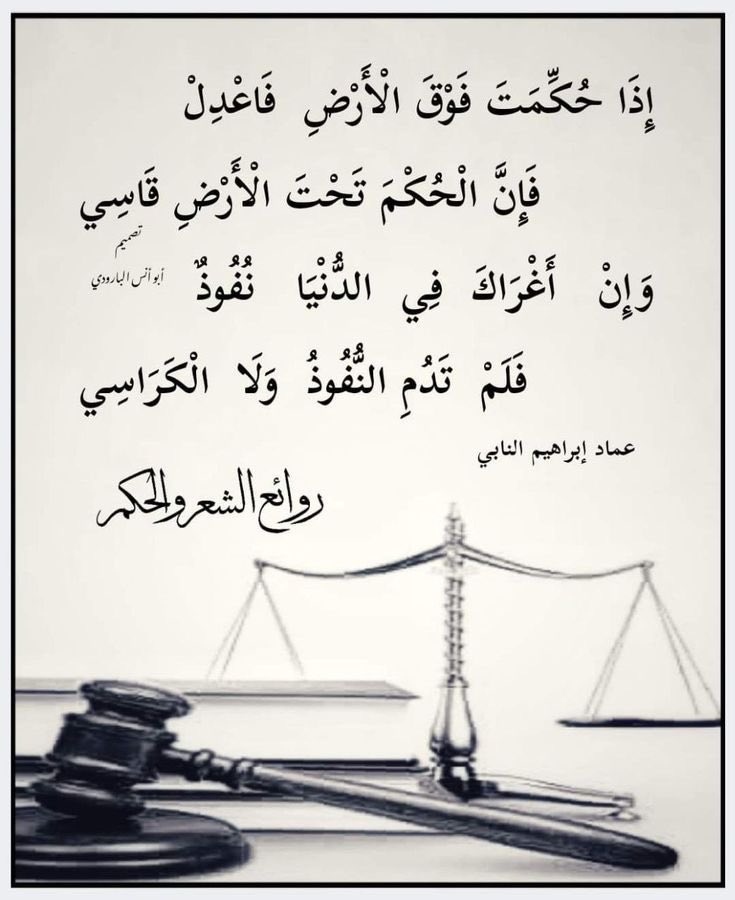 إِذَا حُكِّمَتَ فَوْقَ الْأَرْضِ فَاعْدِلْ
فَإِنَّ الْحُكْمَ تَحْتَ الْأَرْضِ قَاسِي
تصميم
أبو أنس البارودي
وَإِنْ أَغْرَاكَ فِي الدُّنْيَا نُفُوذٌ
فَلَمْ تَدُمِ النُّفُوذُ وَلَا الْكَرَاسِي
عماد إبراهيم النابي
روائع الشعر والحكم